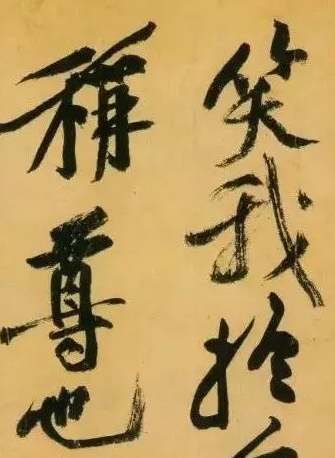 笑我於
稱尊也